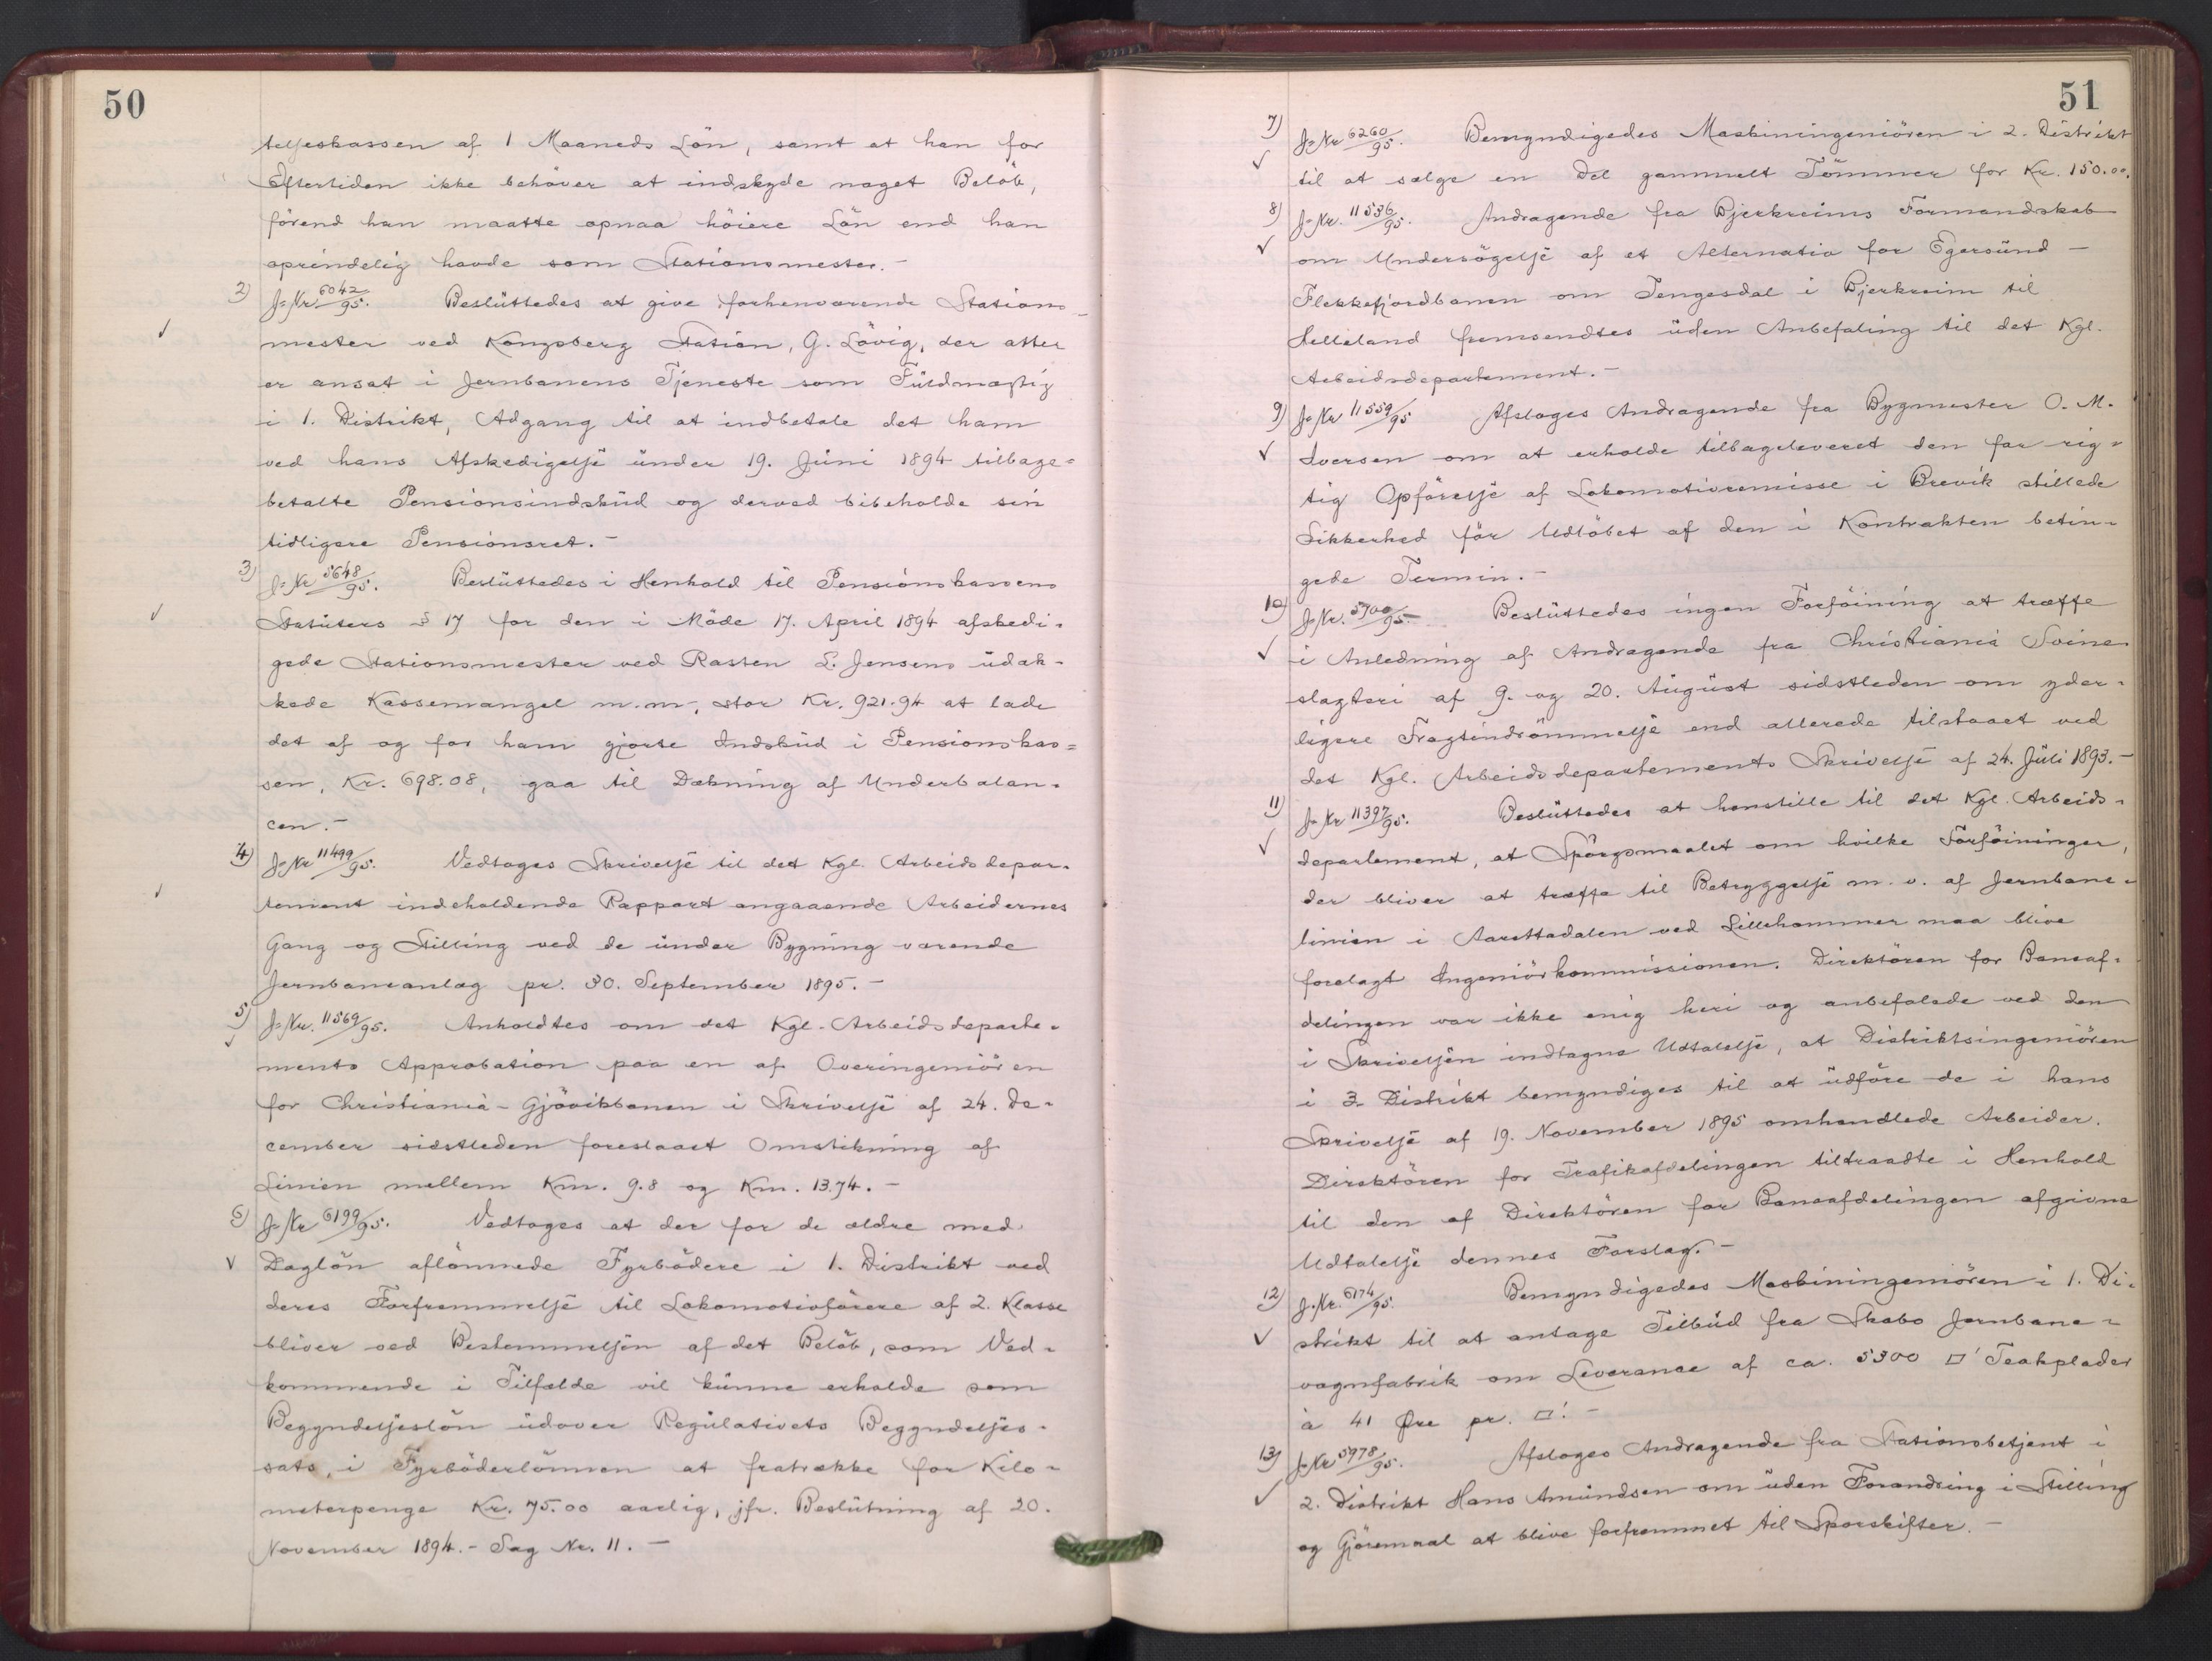 50
teljeskassen af 1 Maaneds Lön, samt at han for
Eftertiden ikke behöver at indskyde noget Belöb,
förend han maatte opnaa höiere Lön end han
oprindelig havde som Stationsmester.-
2) J=Nr. 6042/95. Beslüttedes at give forhenværende Stations-
mester ved Kongsberg Station, G. Lövig, der atter
er ansat i Jernbanens Tjeneste som Füldmægtig
i 1. Distrikt, Adgang til at indbetale det ham
ved hans Afskedigelse ünder 19. Jüni 1894 tilbage=
betalte Pensionsindsküd og derved bibeholde sin
tidligere Pensionsret.-
3) J=Nr 5648/95. Beslüttedes i Henhold til Pensionskassens
Statüters § 17 for den i Möde 17. April 1894 afskedi-
gede Stationsmester ved Rasten L. Jensens üdæk-
kede Kassemangel m.m., stor Kr. 921.94 at lade
det af og for ham gjorte Indsküd i Pensionskas=
sen, Kr. 698.08, gaa til Dækning af Underbalan-
cen.-
4) J=Nr 11499/95. Vedtoges Skrivelse til det Kgl. Arbeidsdepar-
tement indeholdende Rapport angaaende Arbeidernes
Gang og Stilling ved de ünder Bygning værende
Jernbaneanlæg pr. 30. September 1895.-
5) J=Nr. 11569/95. Anholdtes om det Kgl. Arbeidsdeparte-
ments Approbation paa en af Overingeniören
for Christiania-Gjövikbanen i Skrivelse af 24. De-
cember sidstleden foreslaaet Omstikning af
Linien mellem Km. 9.8 og Km. 13.74.-
6) J=Nr 6199/95. Vedtoges at der for de ældre med
Daglön aflönnede Fyrbödere i 1. Distrikt ved
deres Forfremmelse til Lokomotivförere af 2. Klasse
bliver ved Bestemmelsen af det Belöb, som Ved-
kommende i Tilfælde vil künne erholde som
Begyndelseslön üdover Regülativets Begyndelses-
sats, i Fyrböderlönnen at fratrække for Kilo-
meterpenge Kr. 75.00 aarlig, jfr. Beslütning af 20.
November 1894.- Sag Nr. 11.-
51
7) J=Nr 6260/95. Bemyndigedes Maskiningeniören i 2. Distrikt
til at sælge en Del gammelt Tömmer for Kr. 150.00.
8) J=Nr. 11536/95. Andragende fra Bjerkreims Formandskab
om Undersögelse af et Alternativ for Egersünd-
Flekkefjordbanen om Tengesdal i Bjerkreim til
Helleland fremsendtes üden Anbefaling til det Kgl.
Arbeidsdepartement.-
9) J=Nr 11559/95 Afsloges Andragende fra Bygmester O. M.
Iversen om at erholde tilbageleveret den for rig=
tig Opförelse af Lokomotivremisse i Brevik stillede
Sikkerhed för Udlöbet af den i Kontrakten betin-
gede Termin.-
10) J=Nr. 5700/95. Beslüttedes ingen Forföining at træffe
i Anledning af Andragende fra Christiania Svine
slagteri af 9. og 20. Aügüst sidstleden om yder-
ligere Fragtindrömmelse end allerede tilstaaet ved
det Kgl. Arbeidsdepartements Skrivelse af 24. Jüli 1893.-
11) J=Nr 11397/95. Beslüttedes at henstille til det Kgl. Arbeids-
departement, at Spörgsmaalet om hvilke Forföininger,
der bliver at træffe til Betryggelse m. v. af Jernbane-
linien i Aarettadalen ved Lillehammer maa blive
forelagt Ingeniörkommissionen. Direktören for Baneaf-
delingen var ikke enig heri og anbefalede ved den
i Skrivelsen indtagne Udtalelse, at Distriktsingeniören
i 3. Distrikt bemyndiges til at üdföre de i hans
Skrivelse af 19. November 1895 omhandlede Arbeider.
Direktören for Trafikafdelingen tiltraadte i Henhold
til den af Direktören for Baneafdelingen afgivne
Udtalelse dennes Forslag.-
12) J=Nr. 6174/95. Bemyndigedes Maskiningeniören i 1. Di-
strikt til at antage Tilbüd fra Skabo Jernbane-
vognfabrik om Leverance af ca. 5300 □' Teakplader
à 41 Øre pr. □'.-
13) J=Nr 5978/95. Afsloges Andragende fra Stationsbetjent i
2. Distrikt Hans Amündsen om üden Forandring i Stilling
og Gjöremaal at blive forfremmet til Sporskifter.-